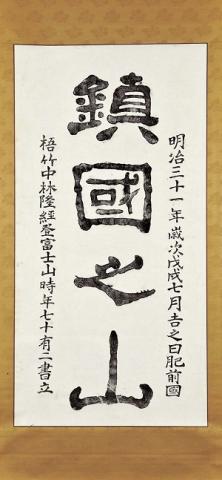 鎮國之山
明治三十一年歲次戊戌七月吉之日肥前國
梧竹中林隆經登富士山時年七十有二書立